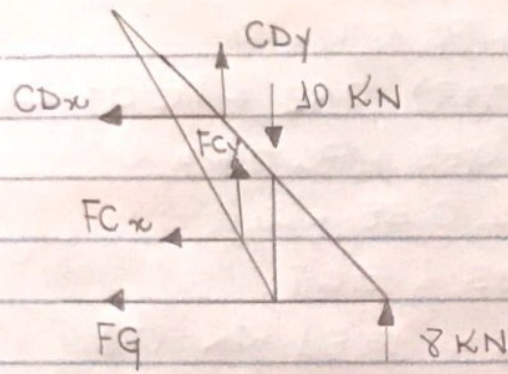 CDy
CDx
10 KN
FCy
FCx
FG
8 KN